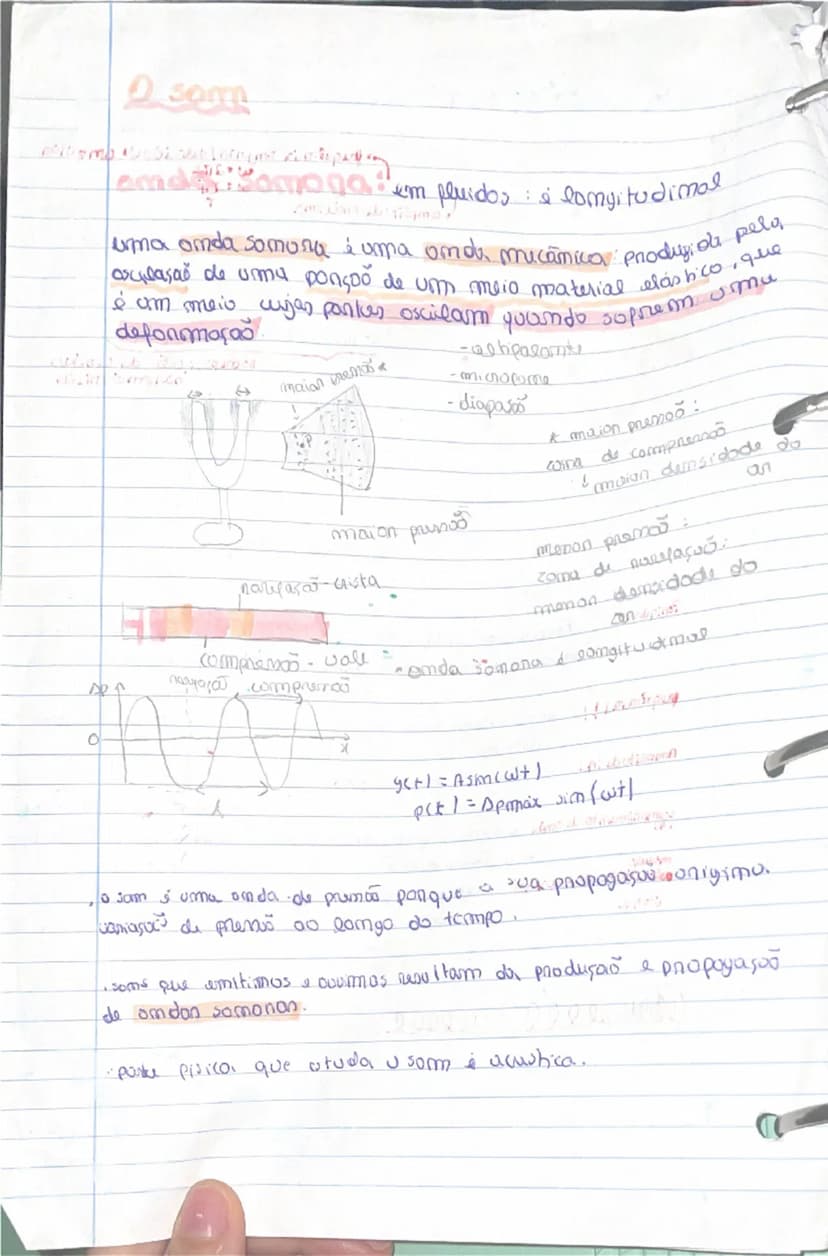 O som
onda sonora: em fluidos : é longitudinal
uma onda sonora é uma onda mecânica produzida pela
oscilasaõ de uma porçoõ de um meio material elástico, que
é um meio cujas partes oscilam quando sofrem uma
deformaçaõ.
- altifalante
- microfone
- diapasaõ
maior pressaõ *
* maior pressaõ :
zona de compressaõ
maior densidade do
ar
maior pressaõ
menor pressaõ :
zona de rarefaçaõ:
menor densidade do
ar
rarefaçaõ - crista
compressaõ - vale
- onda sonora é longitudinal
rarefaçaõ compressaõ
Δp
0
x
λ
y(t) = A sin(ωt)
p(t) = Δpmáx sin(ωt)
. o som é uma onda de pressaõ porque a sua propagaçaõ origina
variaçaõ de pressaõ ao longo do tempo.
. sons que emitimos e ouvimos resultam da produçaõ e propagaçaõ
de ondas sonoras.
. parte física que estuda o som é acustica.